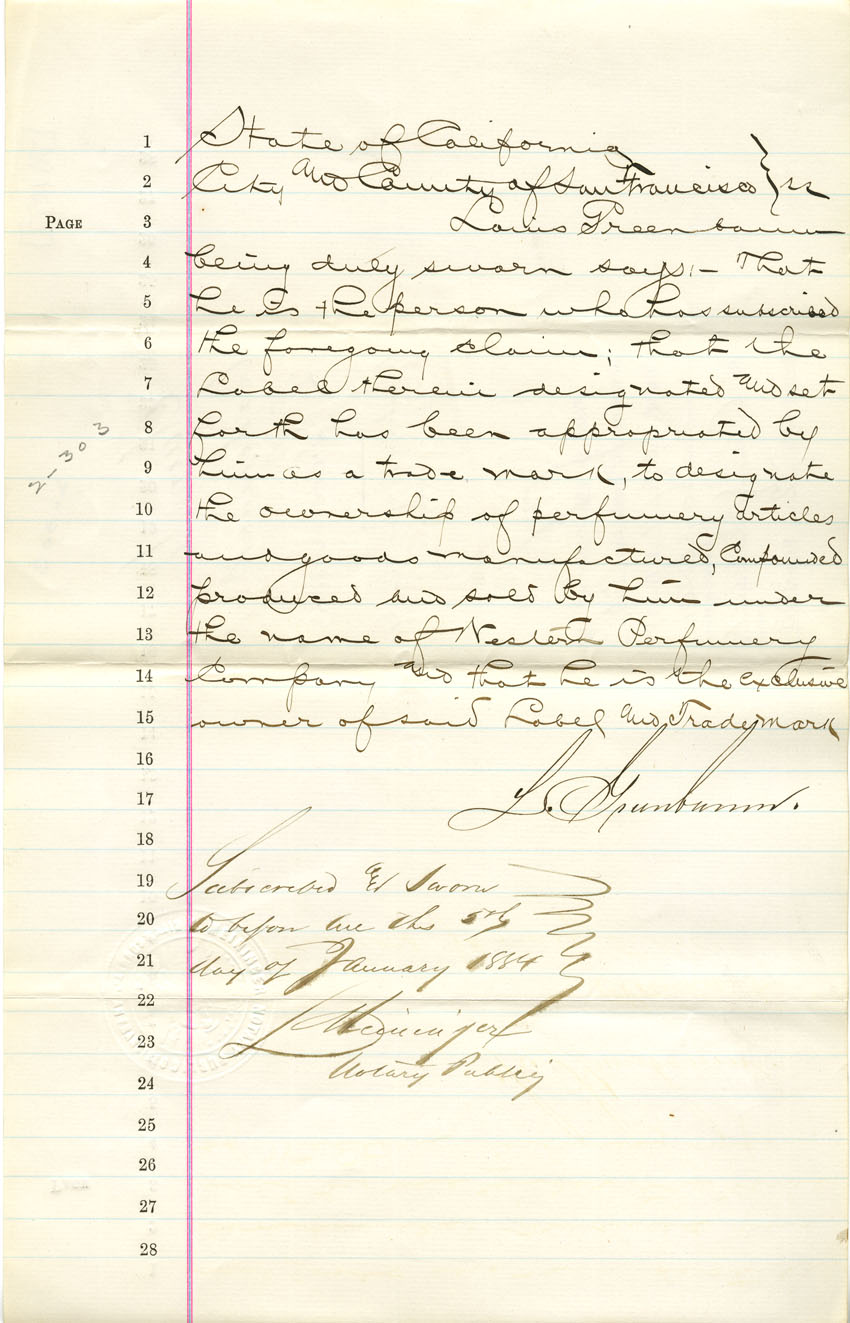 1 State of California }
2 City and County of San Francisco } ss
PAGE 3 Louis Greenbaum
4 being duly sworn says:- That
5 he is the person who has subscribed
6 the foregoing claim; that the
7 Label therein designated and set
8 forth has been appropriated by
9 him as a trade mark, to designate
10 the ownership of perfumery articles
11 and goods manufactured, Compounded
12 produced and sold by him under
13 the name of Western Perfumery
14 Company and that he is the exclusive
15 owner of said Label and Trademark
16
17 L. Greenbaum.
18
19 Subscribed & Sworn
20 to before me this 5th
21 day of January 1884
22
23
24 Notary Public
25
26
27
28
2-303